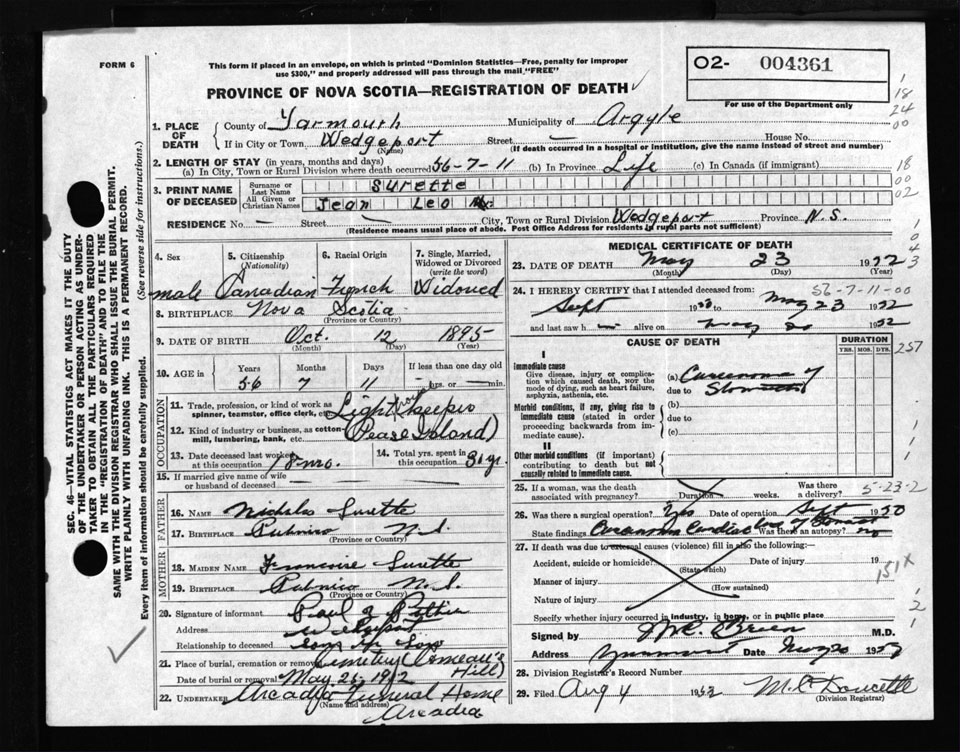 FORM 6
This form if placed in an envelope, on which is printed "Dominion Statistics—Free, penalty for improper
use $300," and properly addressed will pass through the mail "FREE"
PROVINCE OF NOVA SCOTIA—REGISTRATION OF DEATH
O2- 004361
For use of the Department only
1 18 24 00
18 00 02
SEC. 46—VITAL STATISTICS ACT MAKES IT THE DUTY
OF THE UNDERTAKER OR PERSON ACTING AS UNDER-
TAKER TO OBTAIN ALL THE PARTICULARS REQUIRED
IN THE "REGISTRATION OF DEATH" AND TO FILE THE
SAME WITH THE DIVISION REGISTRAR WHO SHALL ISSUE THE BURIAL PERMIT.
WRITE PLAINLY WITH UNFADING INK. THIS IS A PERMANENT RECORD.
Every item of information should be carefully supplied. (See reverse side for instructions.)
1. PLACE OF DEATH County of Yarmouth Municipality of Argyle
If in City or Town Wedgeport (Name) Street — House No.
(If death occurred in a hospital or institution, give the name instead of street and number)
2. LENGTH OF STAY (in years, months and days)
(a) In City, Town or Rural Division where death occurred 56-7-11 (b) In Province Life (c) In Canada (if immigrant)
3. PRINT NAME OF DECEASED Surname or Last Name Surette
All Given or Christian Names Jean Leo
RESIDENCE No. — Street — City, Town or Rural Division Wedgeport Province N.S.
(Residence means usual place of abode. Post Office Address for residents in rural parts not sufficient)
4. Sex male
5. Citizenship (Nationality) Canadian
6. Racial Origin French
7. Single, Married, Widowed or Divorced (write the word) Widowed
8. BIRTHPLACE Nova Scotia
(Province or Country)
9. DATE OF BIRTH Oct. 12 1895
(Month) (Day) (Year)
10. AGE in Years 56 Months 7 Days 11 If less than one day old — hrs. or — min.
OCCUPATION
11. Trade, profession, or kind of work as spinner, teamster, office clerk, etc. Light Keeper
12. Kind of industry or business, as cotton mill, lumbering, bank, etc. (Pease Island)
13. Date deceased last worked at this occupation 18 mo.
14. Total yrs. spent in this occupation 31 yr.
15. If married give name of wife or husband of deceased
FATHER
16. NAME Nicholas Surette
17. BIRTHPLACE Pubnico N.S.
(Province or Country)
MOTHER
18. MAIDEN NAME Francoise Surette
19. BIRTHPLACE Pubnico N.S.
(Province or Country)
20. Signature of informant Paul J Pothier
Address Wedgeport
Relationship to deceased
21. Place of burial, cremation or removal Cemetery (Comeau's Hill)
Date of burial or removal May 26-1952
22. UNDERTAKER Arcadia Funeral Home
(Name and address)
Arcadia
MEDICAL CERTIFICATE OF DEATH
23. DATE OF DEATH May 23 1952
(Month) (Day) (Year)
56-7-11-00
24. I HEREBY CERTIFY that I attended deceased from:
Sept 1950 to May 23 1952
and last saw him alive on May 20 1952
CAUSE OF DEATH
DURATION
YRS. MOS. DYS.
257
I
Immediate cause
Give disease, injury or complica-
tion which caused death, NOR the
mode of dying, such as heart failure,
asphyxia, asthenia, etc.
(a) Carcinoma of
due to Stomach
Morbid conditions, if any, giving rise to
immediate cause (stated in order
proceeding backwards from im-
mediate cause).
(b)
due to
(c)
II
Other morbid conditions (if important)
contributing to death but not
causally related to immediate cause.
25. If a woman, was the death associated with pregnancy? Duration weeks. Was there a delivery?
5-23-2
26. Was there a surgical operation? Yes Date of operation Sept 1950
State findings Carcinoma Cardiac of Stomach Was there an autopsy? no
27. If death was due to external causes (violence) fill in also the following:—
Accident, suicide or homicide? (State which) Date of injury 19
151X
Manner of injury (How sustained)
Nature of injury
Specify whether injury occurred in industry, in home, or in public place
Signed by M.D.
Address Yarmouth Date 1952
28. Division Registrar's Record Number
29. Filed Aug 4 1952 Doucette
(Division Registrar)